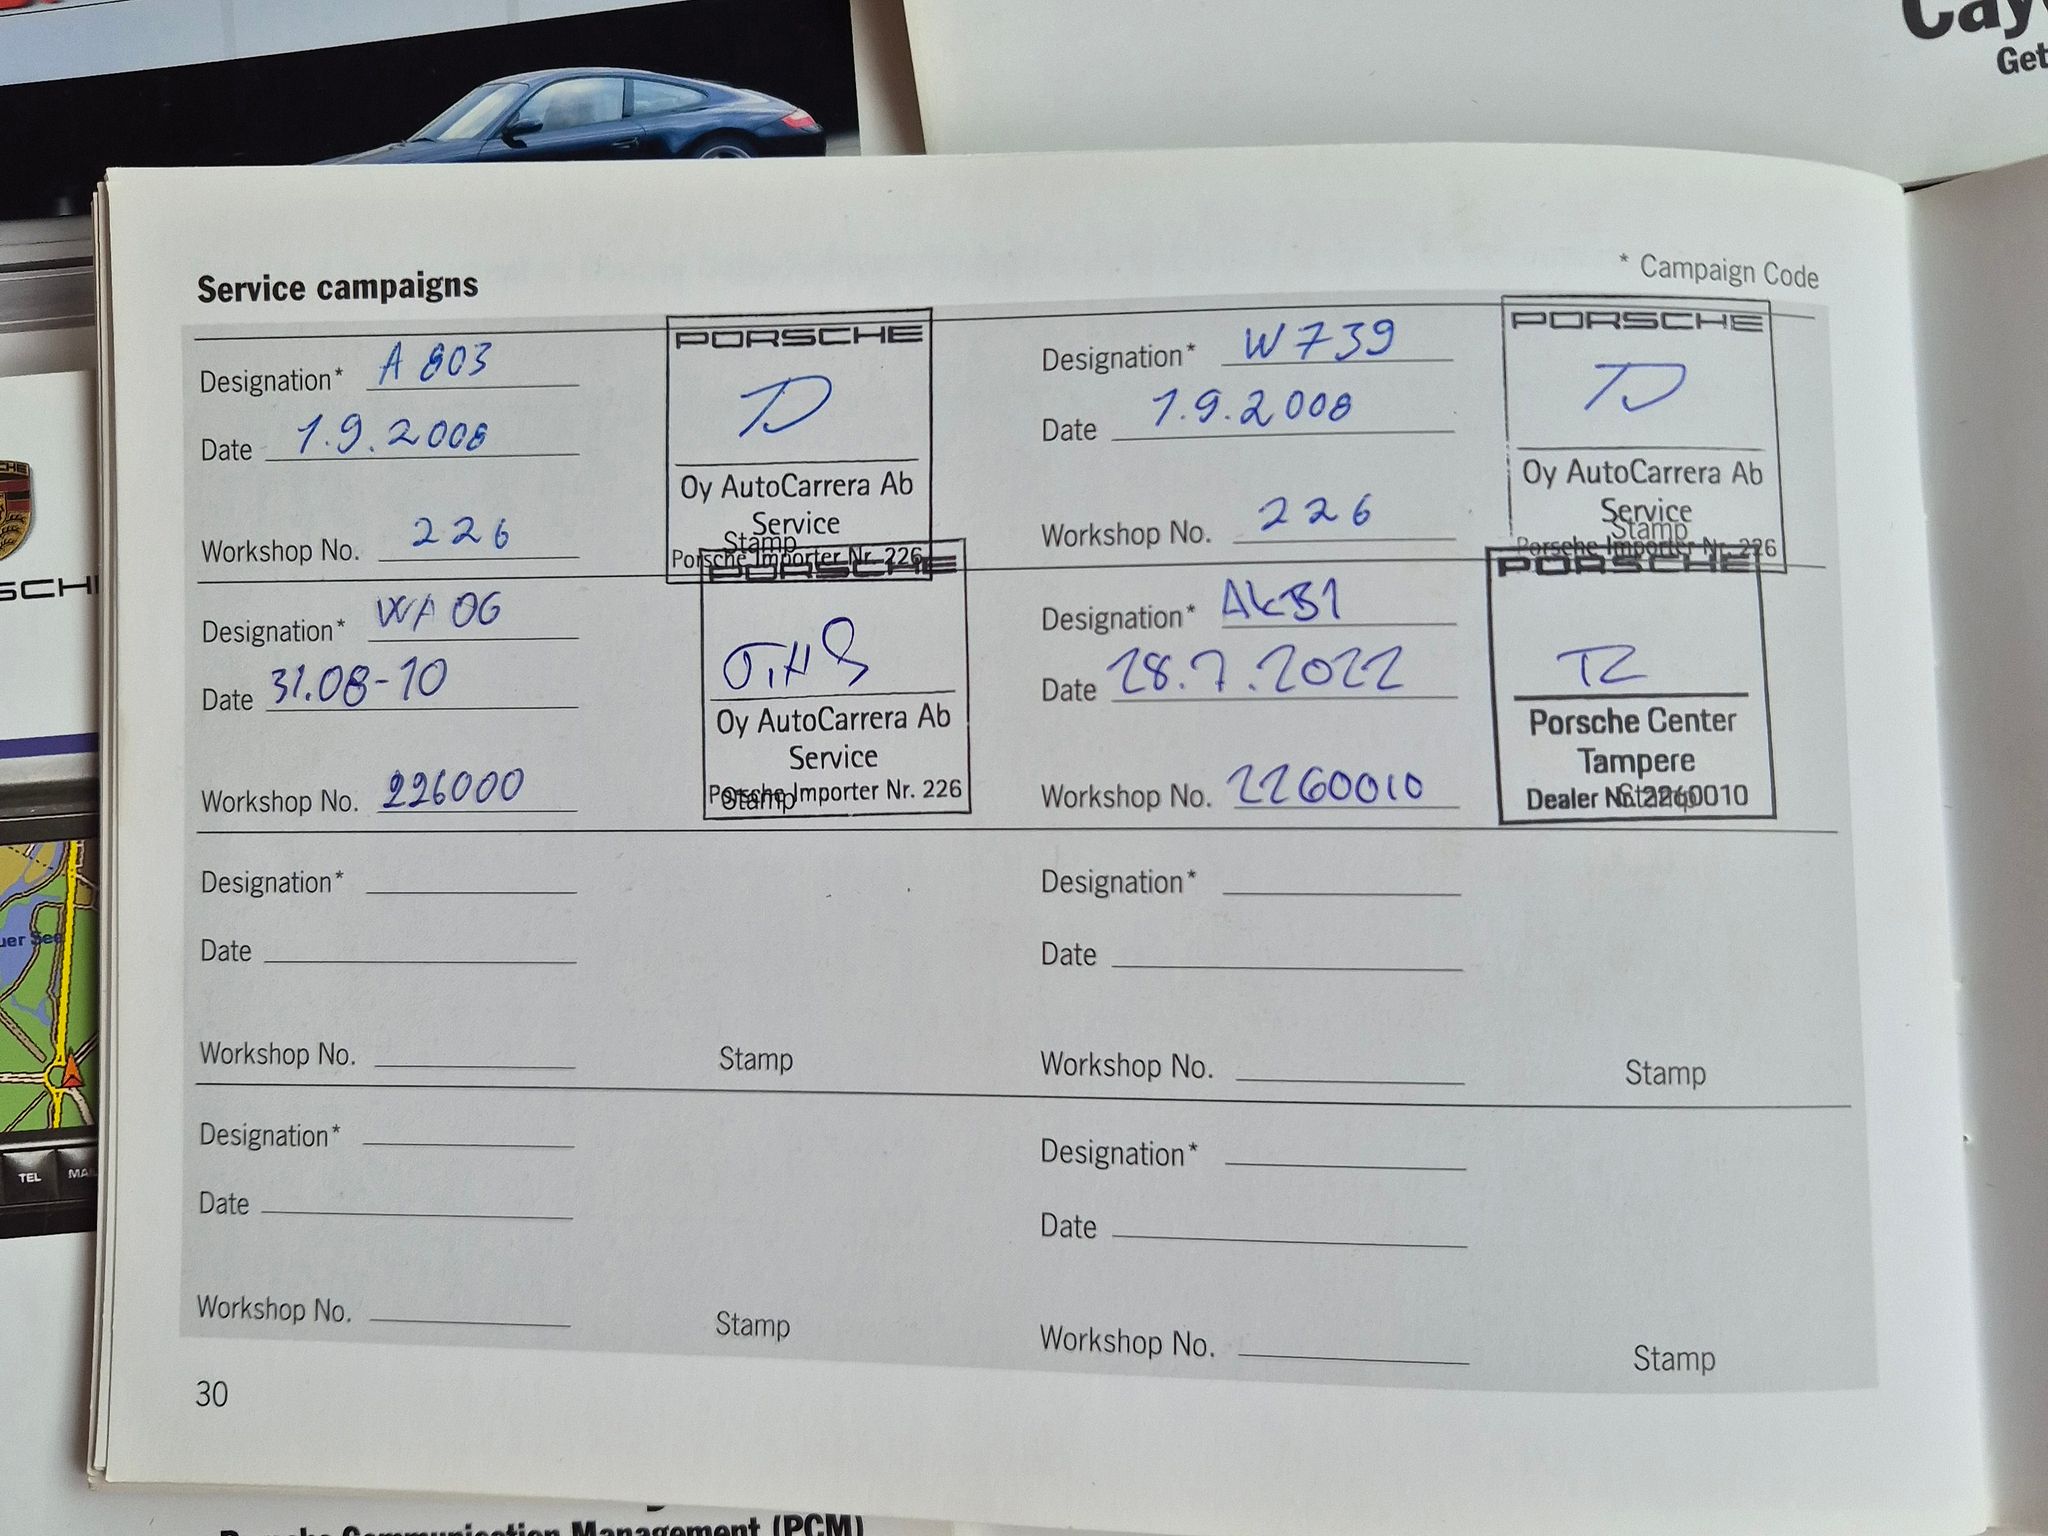 Cay
Get
Service campaigns
* Campaign Code
Designation* A 803
Date 1.9.2008
Workshop No. 226
PORSCHE
TD
Oy AutoCarrera Ab
Service
Stamp
Porsche Importer Nr. 226
Designation* W739
Date 1.9.2008
Workshop No. 226
PORSCHE
TD
Oy AutoCarrera Ab
Service
Stamp
Porsche Importer Nr. 226
Designation* WA06
Date 31.08-10
Workshop No. 226000
PORSCHE
Oy AutoCarrera Ab
Service
Porsche Importer Nr. 226
Stamp
Designation* AKB1
Date 28.7.2022
Workshop No. 2260010
PORSCHE
TZ
Porsche Center
Tampere
Dealer Nr. 2260010
Stamp
Designation*
Date
Workshop No.
Stamp
Designation*
Date
Workshop No.
Stamp
Designation*
Date
Workshop No.
Stamp
Designation*
Date
Workshop No.
Stamp
30
SCH
uer See
TEL
MA
Porsche Communication Management (PCM)